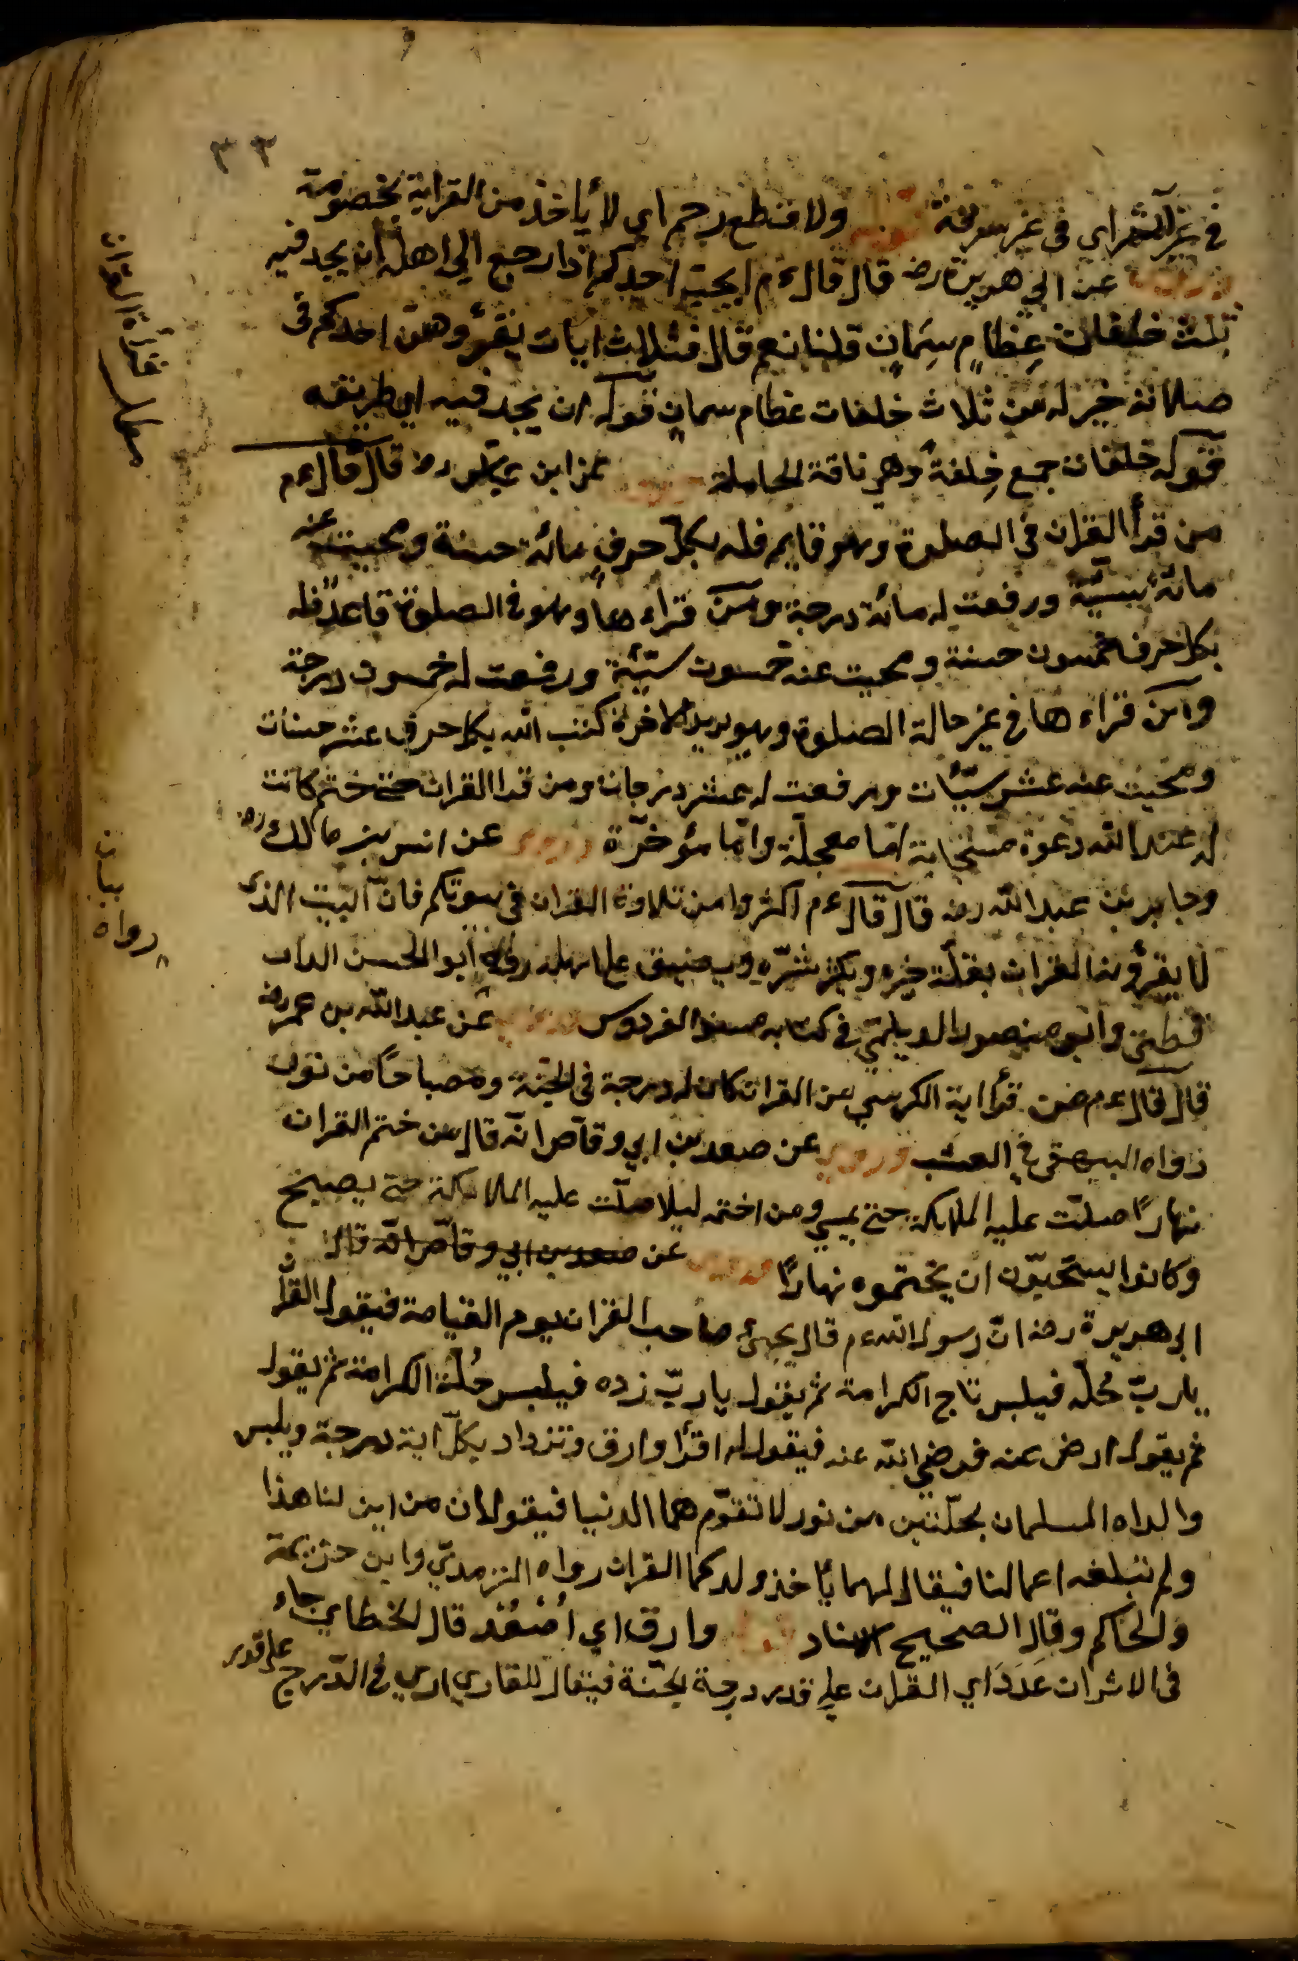 ٣٣
في غير اثم اي في غير سرقة قوله ولا قطع رحم اي لا يأخذ من القرابة بخصومة
وروي عن ابي هريرة رضه قال قال ءم ايحبّ احدكم اذا رجع الى اهله ان يجد فيه
ثلث خلفات عِظامٍ سِمَانٍ قلنا نعم قال فثلاث ايات يقرؤ هنّ احدكم في
صلاته خير له من ثلاث خلفات عظام سمان قوله ان يجد فيه اي طريقه
قوله خلفات جمع خلفة وهو ناقة الحاملة عن ابن عباس رضه قال قال ءم
من قرأ القران في الصلوة وهو قايم فله بكل حرف مائة حسنة ومحيت عنه
مائة سيّئة ورفعت له مائة درجة ومن قراءها وهو في الصلوة قاعدًا فله
بكل حرف خمسون حسنة ومحيت عنه خمسون سيّئة ورفعت له خمسون درجة
ومن قراءها في غير حالة الصلوة وهو يريد الاخرة كتب الله بكل حرف عشر حسنات
ومحيت عنه عشر سيّئات ورفعت له عشر درجات ومن قرا القران حتى ختم كانت
له عند الله دعوة مستجابة امّا معجلّة وامّا مؤخرّة وروي عن انس بن مالك رضه
وجابر بن عبد الله رضه قال قال ءم اكثروا من تلاوة القران في بيوتكم فانّ البيت الذى
لا يقرؤ فيه القران يقلّ خيره ويكثر شرّه ويضيق على اهله رواه ابو الحسن الدار
قطني وابو منصور الديلمي في كتابه مسند الفردوس عن عبد الله بن عمر رضه
قال قال ءم من قرأ اية الكرسي من القران كان له درجة في الجنّة ومصباحًا من نور
رواه البيهقى في الشعب وروي عن صعد بن ابي وقاص انّه قال من ختم القران
نهارًا صلّت عليه الملايكة حتى يمسي ومن اختمه ليلا صلّت عليه الملائكة حتى يصبح
وكانوا يستحبّون ان يختموه نهارًا عن صعد بن ابي وقاص انّه قال
ابى هريرة رضه انّ رسول الله ءم قال يجئ صاحب القران يوم القيامة فيقول القران
يا ربّ حلّه فيلبس تاج الكرامة ثم يقول يا ربّ زده فيلبس حُلّة الكرامة ثم يقول
ثم يقول ارض عنه فرضي الله عنه فيقول له اقرأ وارق وتزداد بكلّ اية درجة ويلبس
والداه المسلمان بحلّتين من نور لا تقوّم هما الدنيا فيقولان من اين لنا هذا
ولم تبلغه اعمالنا فيقال لهما باخذ ولدكما القران رواه الترمديّ وابن خزيمة
والحاكم وقال الصحيح الاسناد قوله وارق اي اُصْعُدْ قال الخطابي جاء
في الاثر ان عَدَدَ اي القران على قدر درجة الجنّة فيقال للقاري ارق في الدّرج على قدر
بيان
رواه